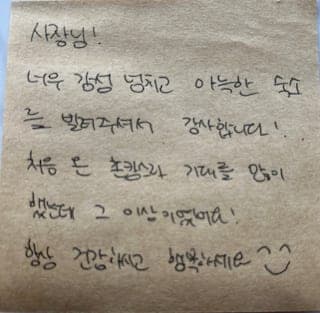 사장님!
너무 감성 넘치고 아늑한 숙소
를 빌려주셔서 감사합니다!
처음 온 촌캉스라 기대를 많이
했는데 그 이상이였어요!
항상 건강하시고 행복하세요